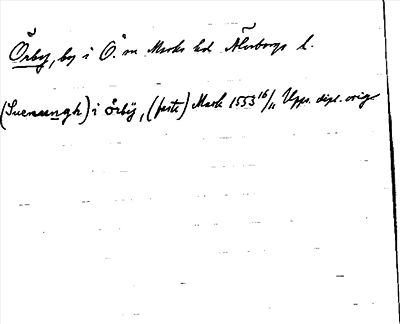 Örby, by i Ö. sn Marks hd Älvsborgs l.
(Suenungh) i örby, (fasta) Mark 1553 16/11 Upps. dipl. orig.